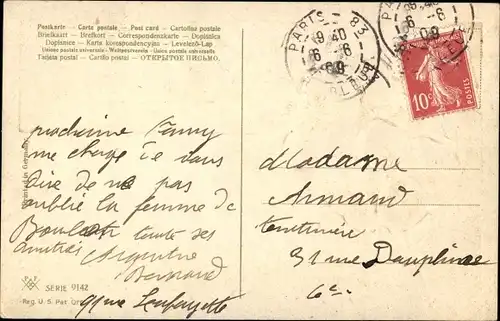 Postkarte - Carte postale - Post card - Cartolina postale
Briefkaart - Brefkort - Correspondenzkarte - Dopisnica
Dopisnice - Karta korespondencyjna - Levelező-Lap
Unione postale universale - Weltpostverein - Union postale universelle
Tarjeta postal - Cartão postal - ОТКРЫТОЕ ПИСЬМО.
PARIS 83
9 40
6 - 6
09
PARIS
9 40
6 - 6
09
10c
POSTES
Printed in Germany
Fanny
me charge de vous
dire de ne pas
oublié la femme de
toute ses
amitiés Argentine
Bernard
91 rue Lafayette
Madame
Armand
teinturière
31 rue Dauphine
6e.
PFB
SERIE 9142
Reg. U. S. Pat. Off.